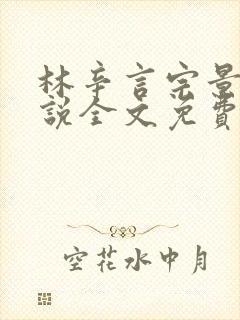 林辛言宗景
說全文免費
空花水中月